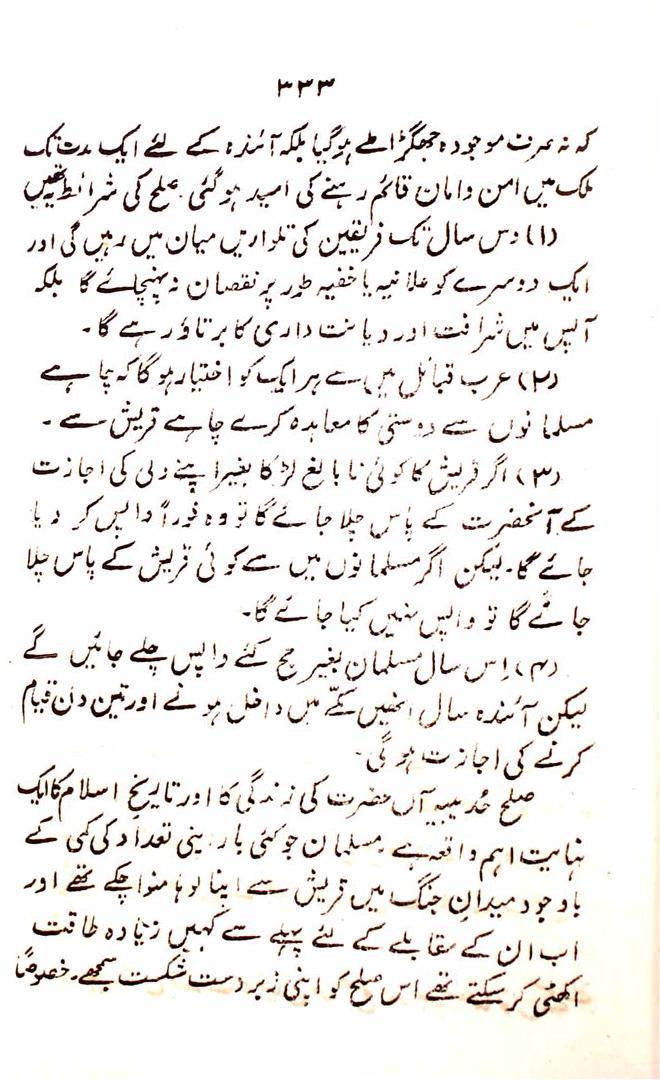 ۳۳۳
کہ نہ صرف موجودہ جھگڑا طے ہوگیا بلکہ آئندہ کے لئے ایک مدت تک
ملک میں امن و امان قائم رہنے کی امید ہوگئی۔ صلح کی شرائط یہ تھیں
(۱) دس سال تک فریقین کی تلواریں میان میں رہیں گی اور
ایک دوسرے کو علانیہ یا خفیہ طور پر نقصان نہ پہنچائے گا بلکہ
آپس میں شرافت اور دیانت داری کا برتاؤ رہے گا۔
(۲) عرب قبائل میں سے ہر ایک کو اختیار ہوگا کہ چاہے
مسلمانوں سے دوستی کا معاہدہ کرے چاہے قریش سے۔
(۳) اگر قریش کا کوئی نابالغ لڑکا بغیر اپنے ولی کی اجازت
کے آنحضرت کے پاس چلا جائے گا تو وہ فوراً واپس کر دیا
جائے گا۔ لیکن اگر مسلمانوں میں سے کوئی قریش کے پاس چلا
جائے گا تو واپس نہیں کیا جائے گا۔
(۴) اِس سال مسلمان بغیر حج کئے واپس چلے جائیں گے
لیکن آئندہ سال انھیں مکّے میں داخل ہونے اور تین دن قیام
کرنے کی اجازت ہوگی۔
صلح حُدیبیہ آں حضرت کی زندگی کا اور تاریخِ اسلام کا ایک
نہایت اہم واقعہ ہے۔ مسلمان جو کئی بار اپنی تعداد کی کمی کے
باوجود میدانِ جنگ میں قریش سے اپنا لوہا منوا چکے تھے اور
اب ان کے مقابلے کے لئے پہلے سے کہیں زیادہ طاقت
اکھٹی کر سکتے تھے اس صلح کو اپنی زبردست شکست سمجھے۔ خصوصاً